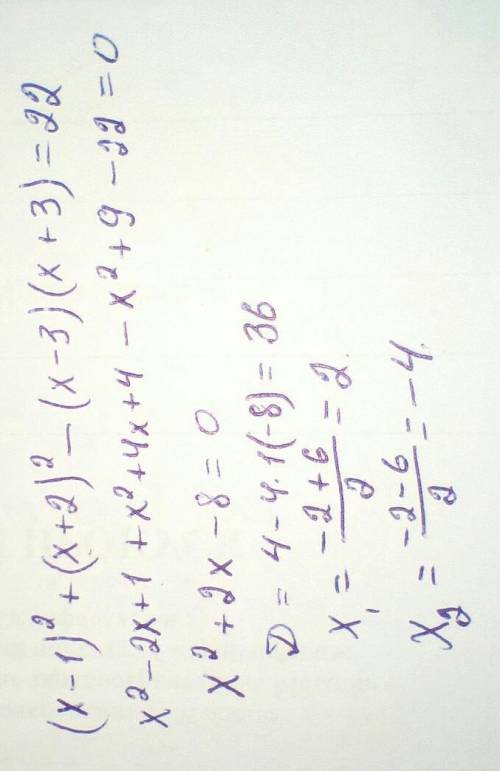 (x-1)² + (x+2)² - (x-3)(x+3) = 22
x² - 2x + 1 + x² + 4x + 4 - x² + 9 - 22 = 0
x² + 2x - 8 = 0
D = 4 - 4·1(-8) = 36
x₁ = (-2+6)/2 = 2.
x₂ = (-2-6)/2 = -4.